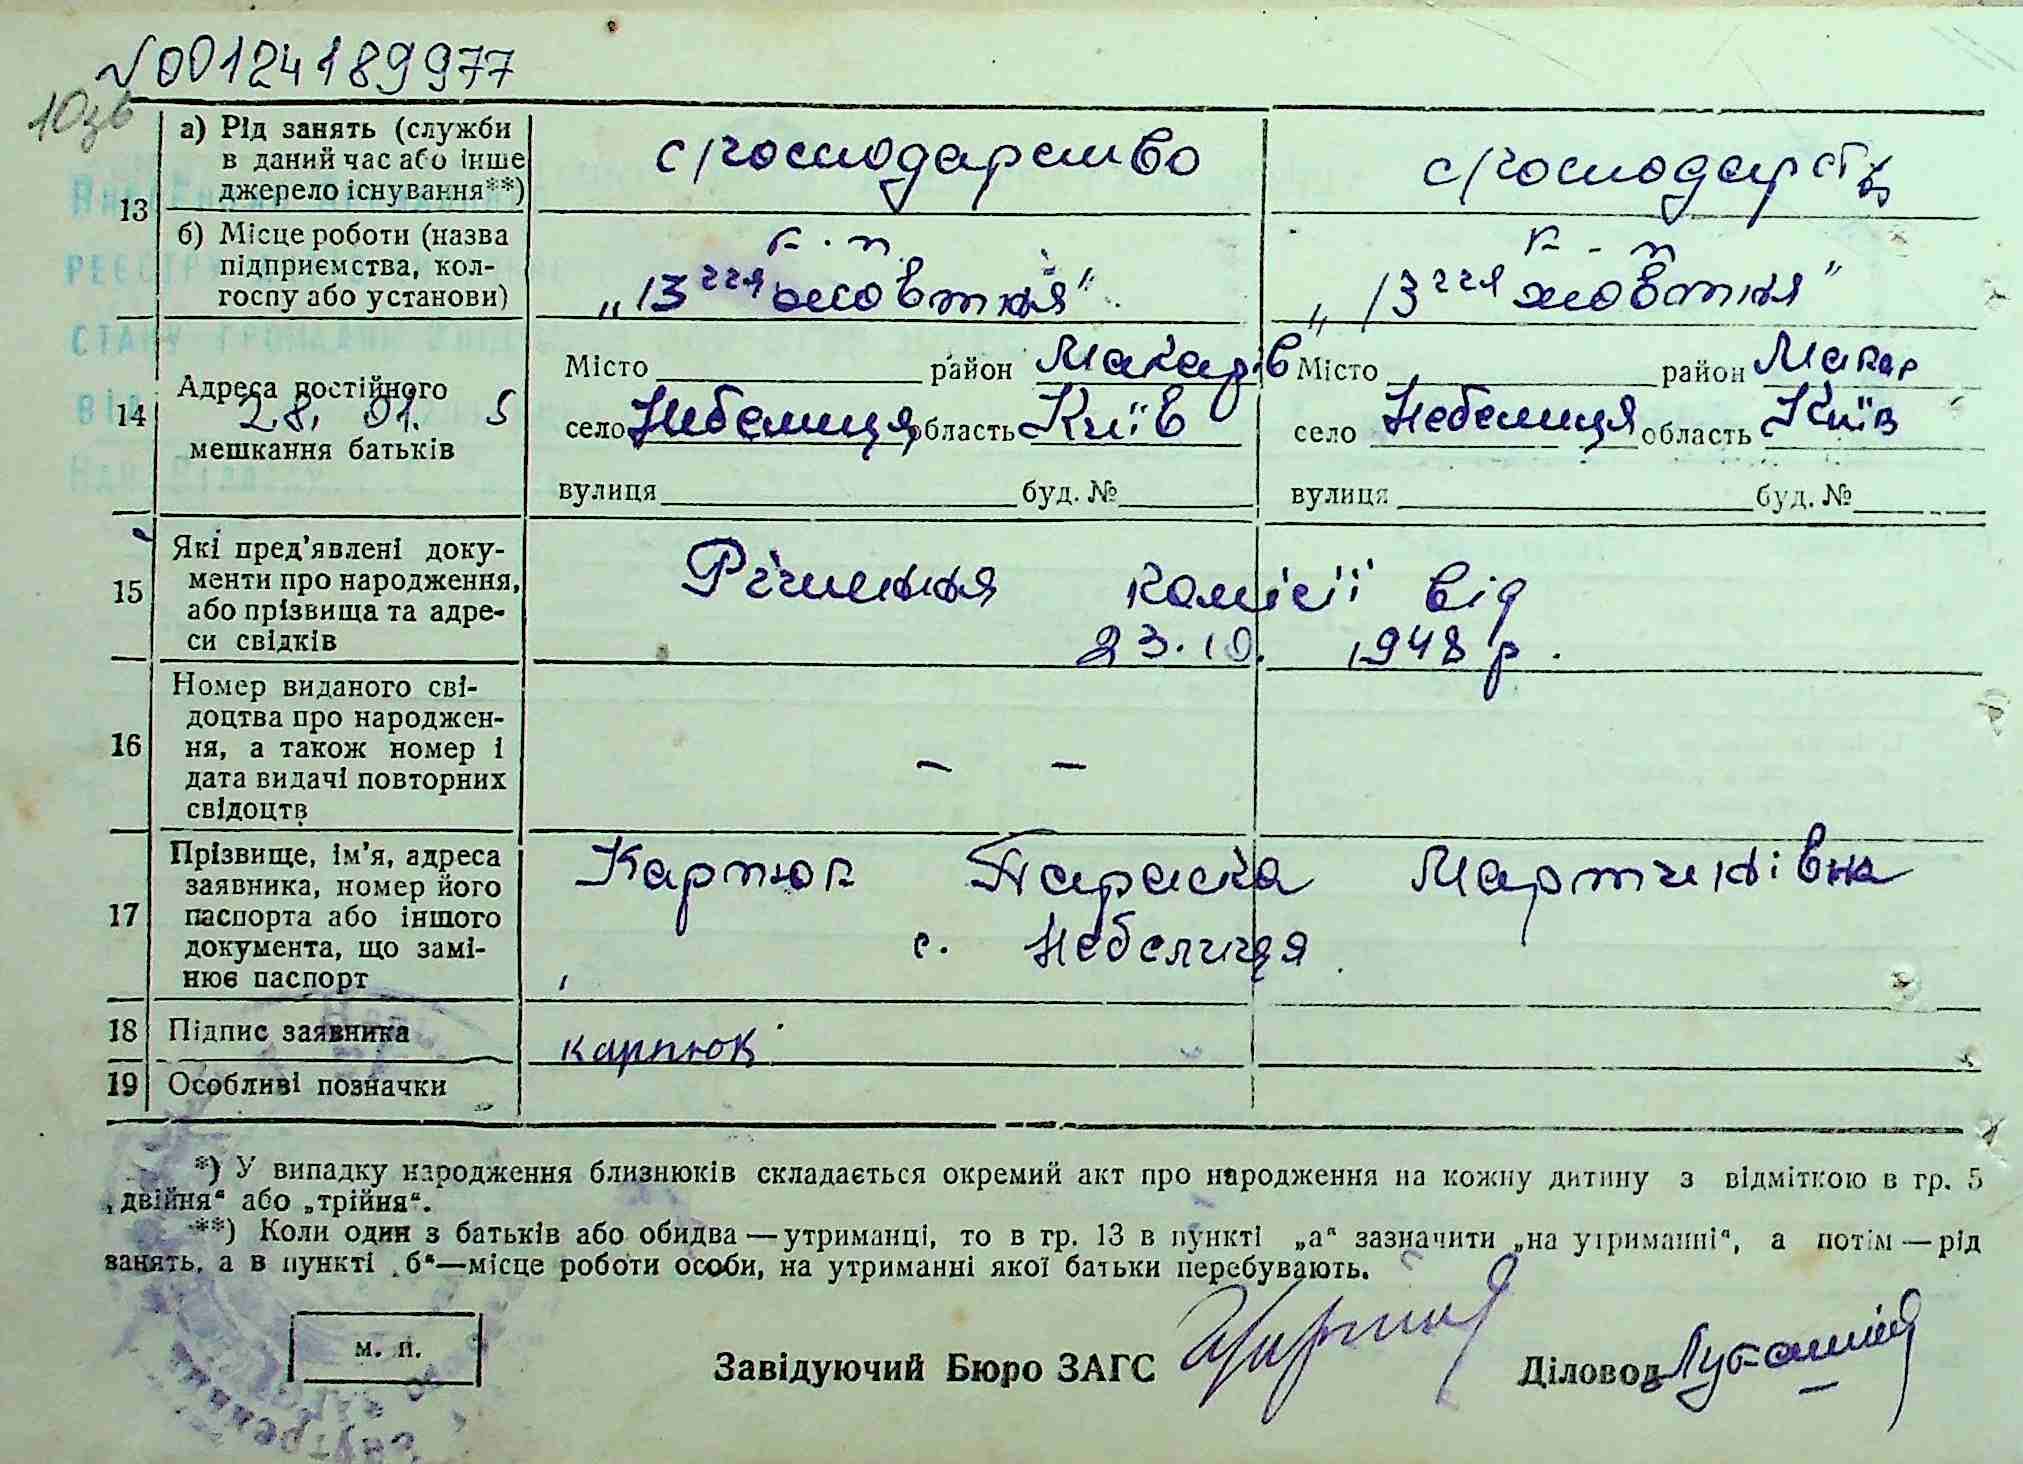 00124189977
10зв
13 а) Рід занять (служби в даний час або інше джерело існування**)
с/господарство
с/господарств
б) Місце роботи (назва підприємства, колгоспу або установи)
к-п
„13 ччя жовтня"
к-п
„13 ччя жовтня"
14 Адреса постійного мешкання батьків
28. 01.
Місто район Макарів
село Небелиця область Київ
вулиця буд. №
Місто район Макар
село Небелиця область Київ
вулиця буд. №
15 Які пред'явлені документи про народження, або прізвища та адреси свідків
Рішення комісії від
23.10. 1948 р.
16 Номер виданого свідоцтва про народження, а також номер і дата видачі повторних свідоцтв
– –
17 Прізвище, ім'я, адреса заявника, номер його паспорта або іншого документа, що замінює паспорт
Карпюк Параска Мартинівна
с. Небелиця
18 Підпис заявника
карпюк
19 Особливі позначки
*) У випадку народження близнюків складається окремий акт про народження на кожну дитину з відміткою в гр. 5
„двійня" або „трійня".
**) Коли один з батьків або обидва — утриманці, то в гр. 13 в пункті „а" зазначити „на утриманні", а потім — рід
занять, а в пункті „б"—місце роботи особи, на утриманні якої батьки перебувають.
м. п.
Завідуючий Бюро ЗАГС
Діловод